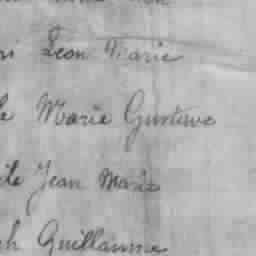 Leon Marie
Marie Gustave
Jean Marie
Guillaume